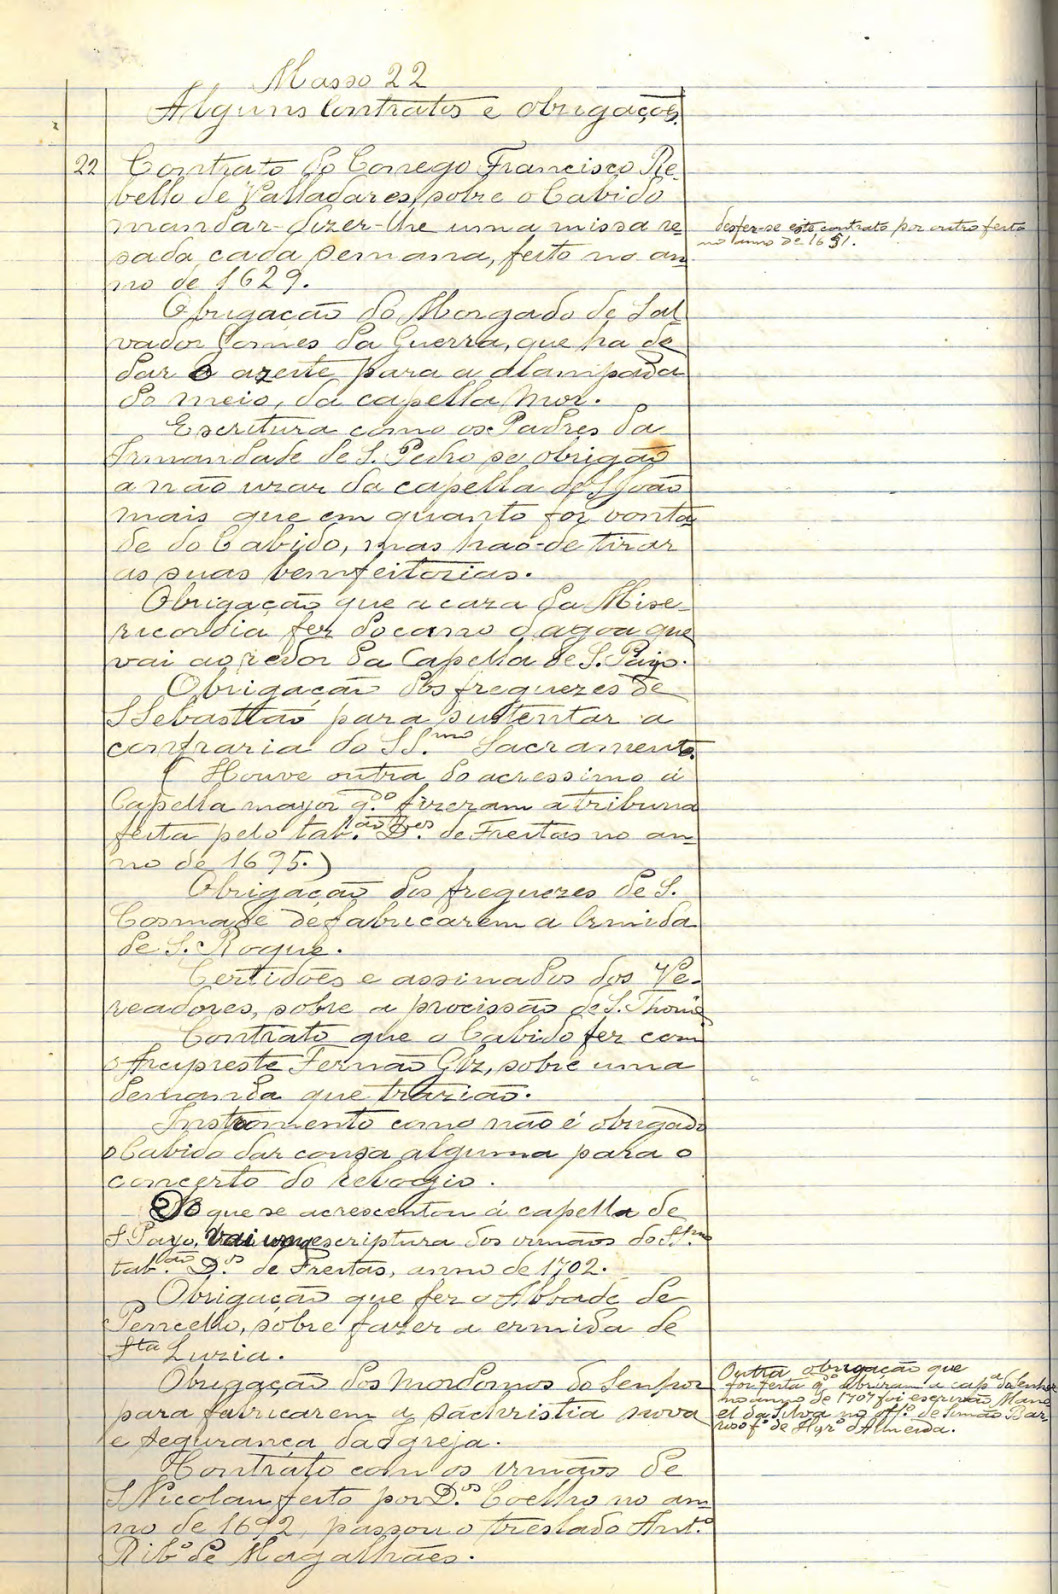 Masso 22
Alguns Contratos e obrigações.
22 Contrato do Conego Francisco Re-
bello de Valladares, sobre o Cabido
mandar-dizer-lhe uma missa re-
sada cada semana, feito no an-
no de 1629.
desfez-se este contrato por outro feito
no anno de 1651.
Obrigação do Morgado de Sal-
vador Gomes da Guerra, que ha de
dar o azeite para a alampada
do meio, da capella Mor.
Escritura como os Padres da
Irmandade de S. Pedro se obrigão
a não uzar da capella de S João
mais que em quanto for vonta-
de do Cabido, mas hao-de tirar
as suas bemfeitorias.
Obrigação que a caza da Mise-
ricordia fez do cano d agoa que
vai ao redor da Capella de S. Payo.
Obrigação dos freguezes de
S Sebastião para sustentar a
confraria do SS.mo Sacramento.
( Houve outra do acressimo á
Capella mayor q.do fizeram a tribuna
feita pelo tab.ão D.os de Freitas no an-
no de 1695.)
Obrigação dos freguezes de S.
Cosmade de fabricarem a Ermida
de S. Roque.
Certidões e assinados dos Ve-
readores, sobre a procissão de S. Thomé
Contrato que o Cabido fez com
o Arcipreste Fernão Glz, sobre uma
demanda que trazião.
Instromento como não é obrigado
o Cabido dar couza alguma para o
concerto do relogio.
Do que se acrescentou á capella de
S Payo, vai uma escriptura dos irmãos do SS.mo
tab.ão D.os de Freitas, anno de 1702.
Obrigação que fez o Abbade de
Pencello, sobre fazer a ermida de
Sta Luzia.
Obrigação dos Mordomos do Senhor
para fabricarem a sachristia nova
e segurança da Igreja.
Outra obrigação que
foi feita q.do abriram a cap.a do Senhor
no anno de 1707 foi escrivão Man-
el da Silva no off.o de Simão Bar-
roso f.o de Hyr.o d'Almeida.
Contrato com os irmãos de
S Nicolau feito por D.os Coelho no an-
no de 1692, passou o treslado Ant.o
Rib.o de Magalhães.